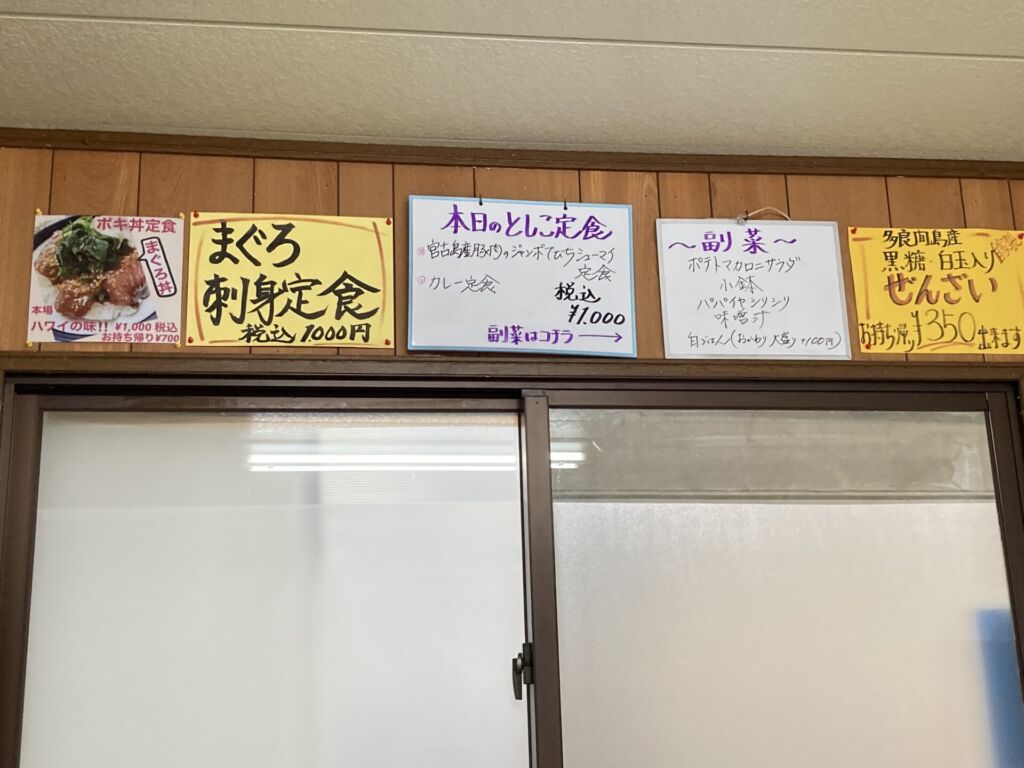 ポキ丼定食
まぐろ丼
本場
ハワイの味!! ¥1,000 税込
お持ち帰り¥700
まぐろ
刺身定食
税込 1,000円
本日のとしこ定食
宮古島産豚肉のジャンボてびちシューマイ
定食
カレー定食
税込
¥1,000
副菜はコチラ→
～副菜～
ポテトマカロニサラダ
小鉢
パパイヤシリシリ
味噌汁
白ごはん(おかわり 大盛り +100円)
多良間島産
黒糖・白玉入り
ぜんざい
お持ち帰り ¥350 出来ます